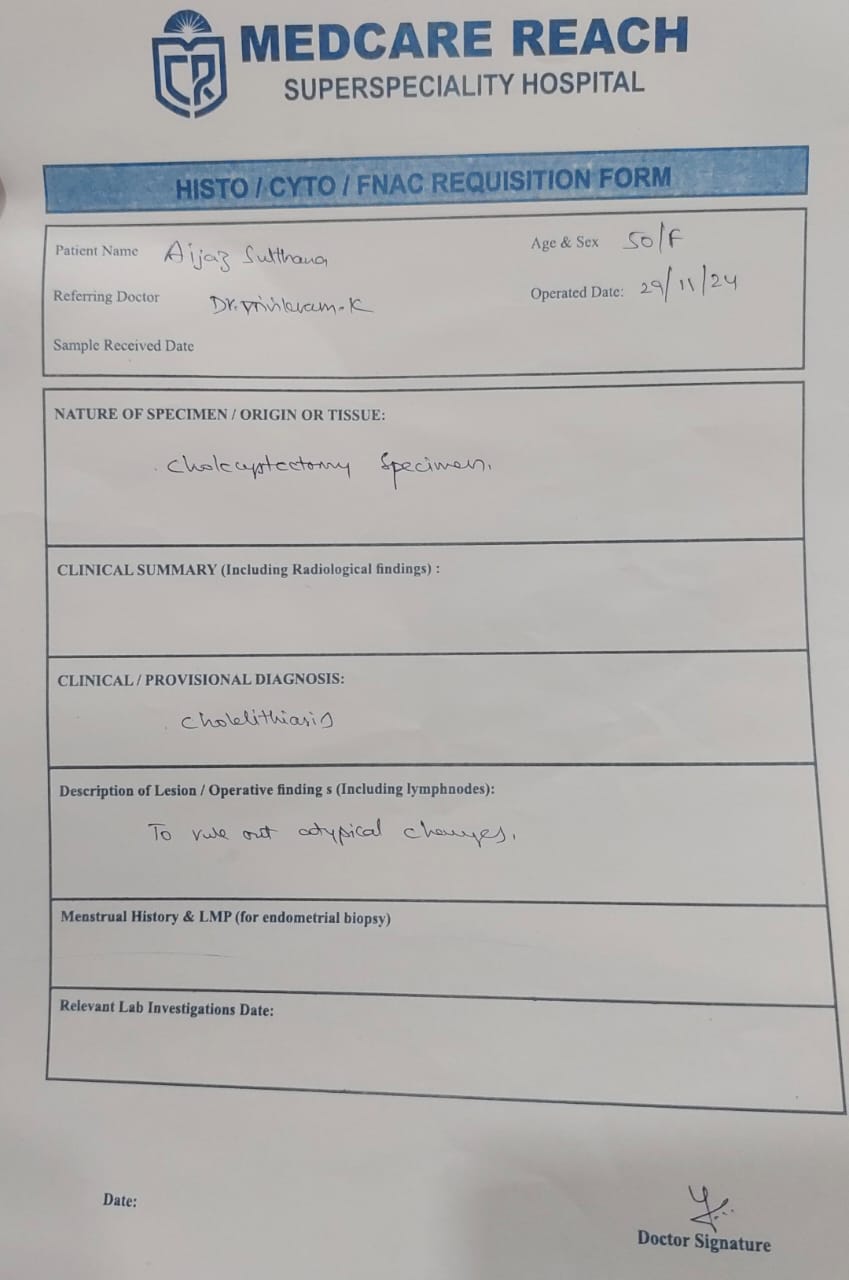 MEDCARE REACH
SUPERSPECIALITY HOSPITAL
HISTO / CYTO / FNAC REQUISITION FORM
Patient Name Aijaz Sulthana Age & Sex 50/F
Referring Doctor Dr. Operated Date: 29/11/24
Sample Received Date
NATURE OF SPECIMEN / ORIGIN OR TISSUE:
Specimen.
CLINICAL SUMMARY (Including Radiological findings) :
CLINICAL / PROVISIONAL DIAGNOSIS:
Cholelithiasis
Description of Lesion / Operative finding s (Including lymphnodes):
To rule out atypical changes.
Menstrual History & LMP (for endometrial biopsy)
Relevant Lab Investigations Date:
Date:
Doctor Signature